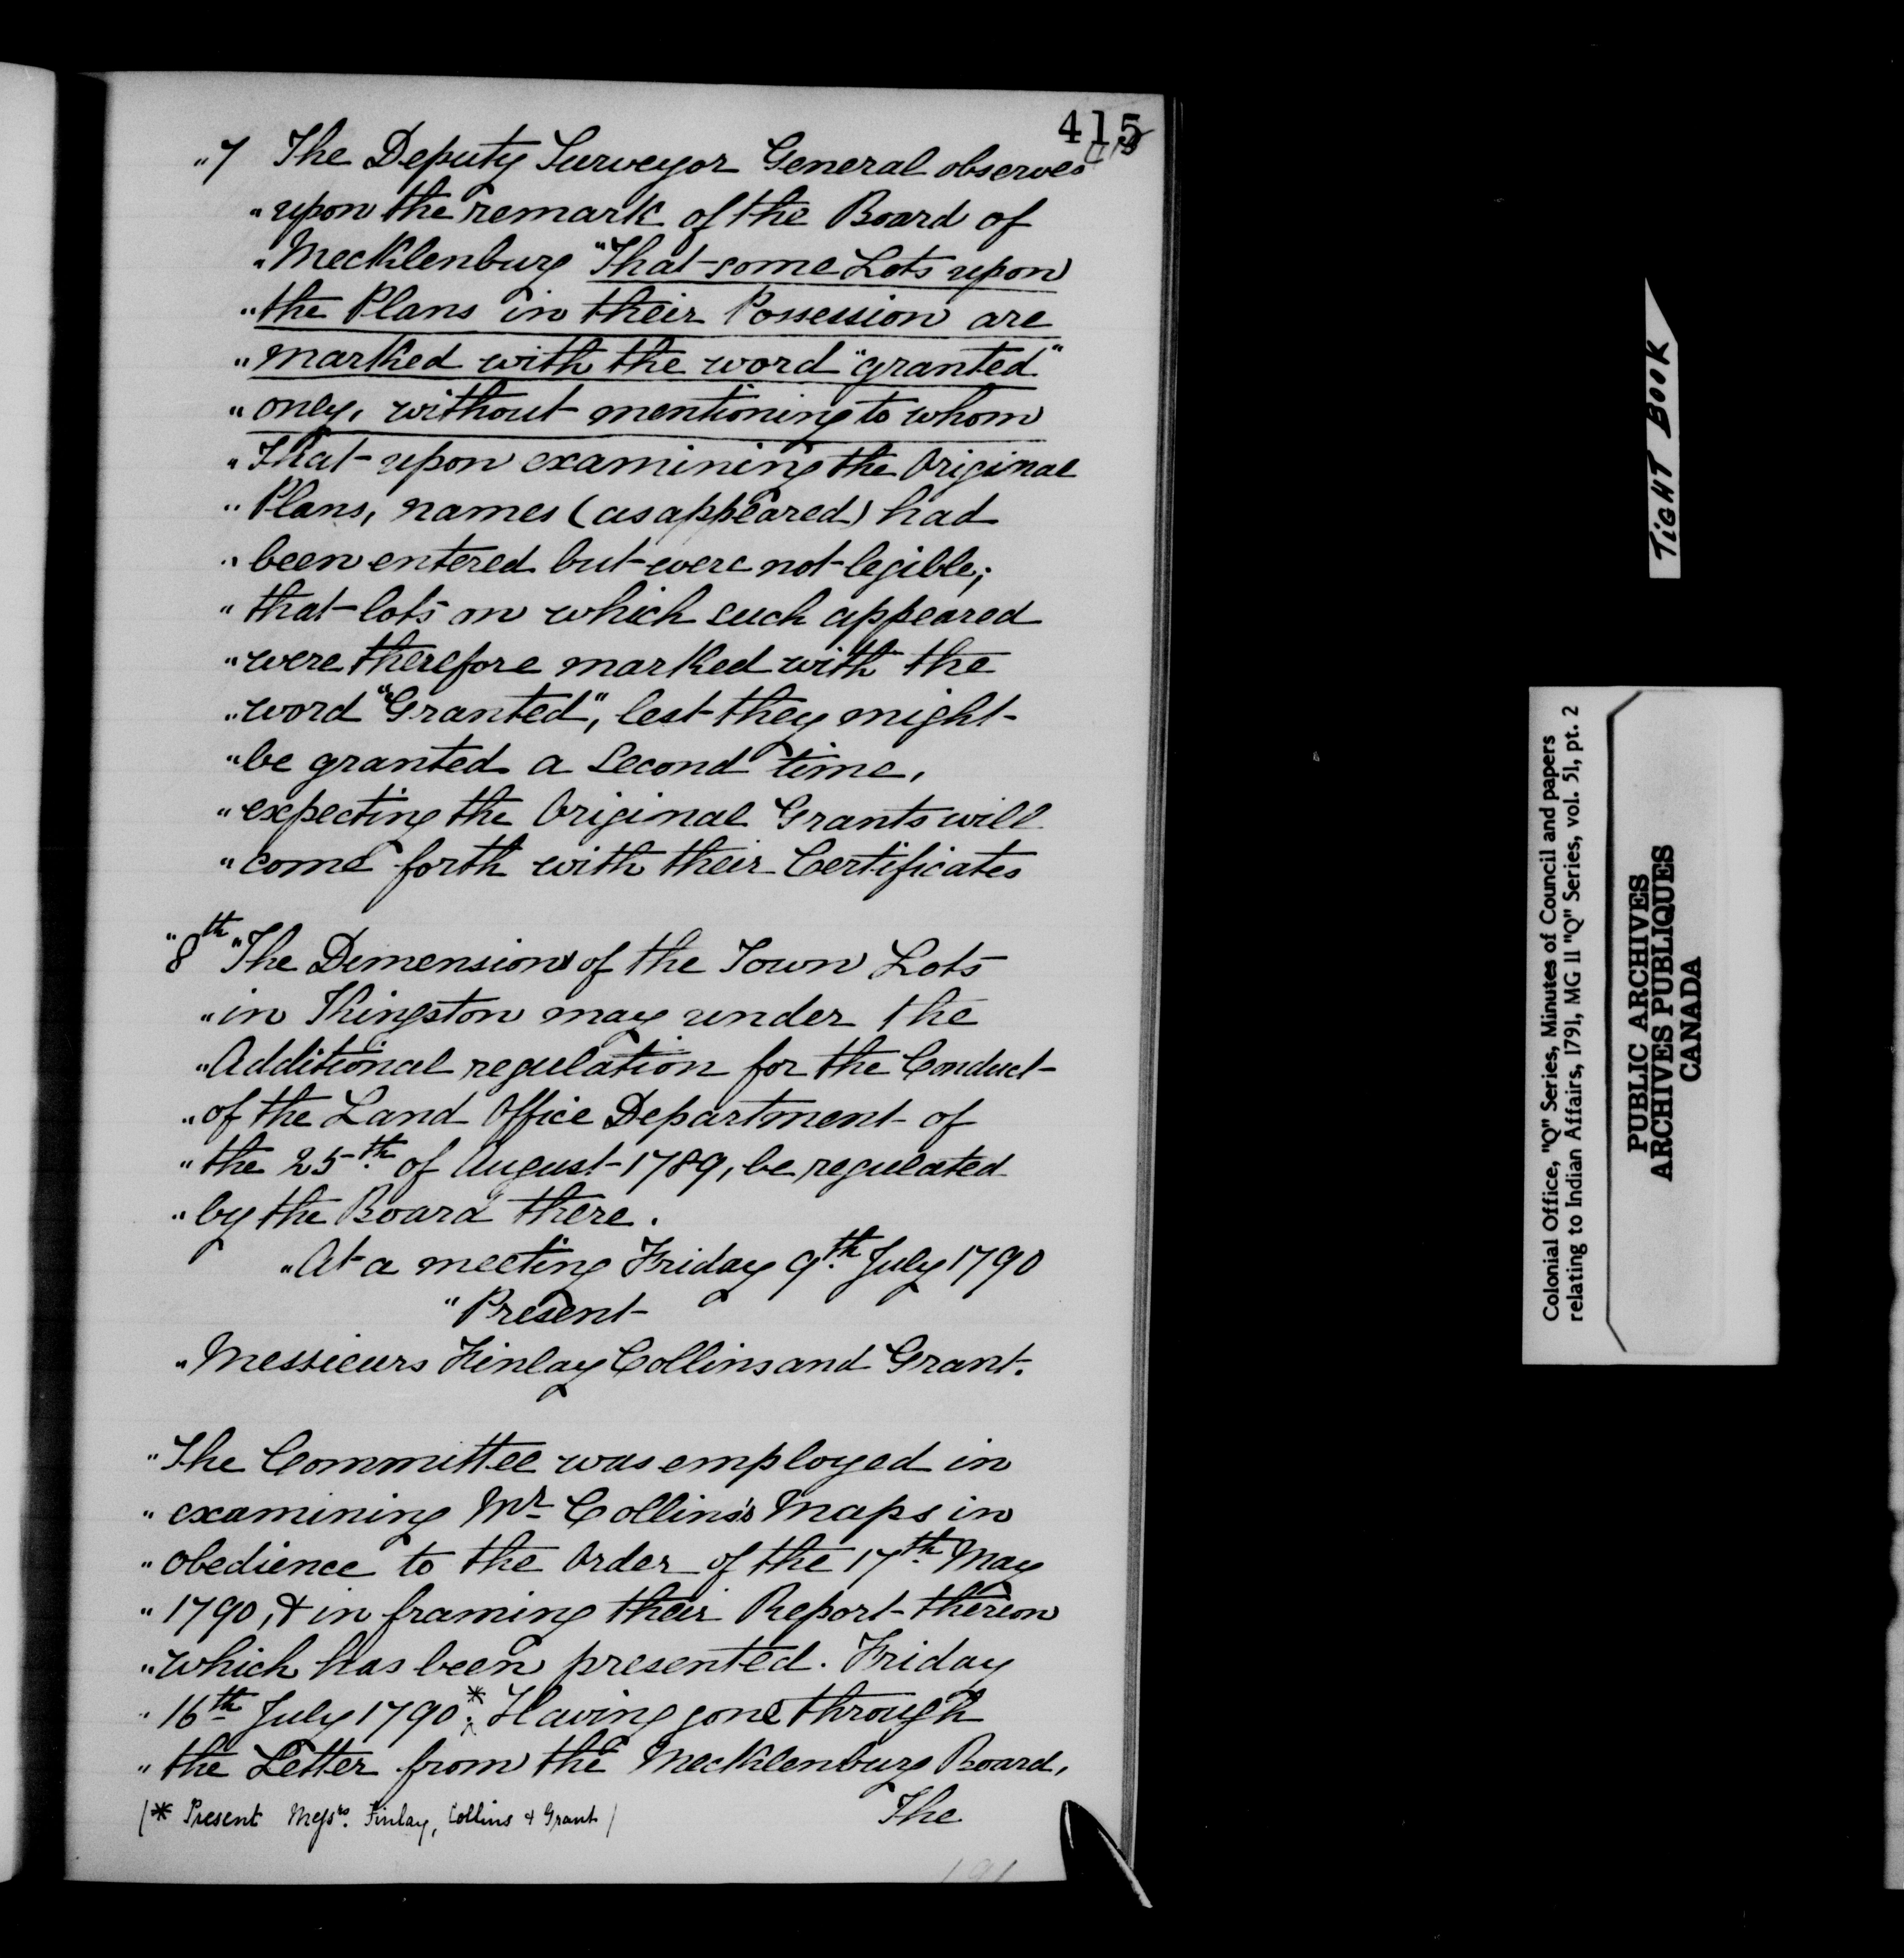 415
"7 The Deputy Surveyor General observes
"upon the remark of the Board of
"Mecklenburg "That some Lots upon
"the Plans in their Possession are
"marked with the word "granted"
"only, without mentioning to whom
"That upon examining the Original
"Plans, names (as appeared) had
"been entered but were not legible;
"that lots on which such appeared
"were therefore marked with the
"word "Granted", lest they might
"be granted a second time,
"expecting the Original Grants will
"come forth with their Certificates
"8th "The Dimensions of the Town Lots
"in Kingston may under the
"Additional regulation for the Conduct
"of the Land Office Department of
"the 25th of August 1789, be regulated
"by the Board there.
"At a meeting Friday 9th July 1790
"Present
"Messieurs Finlay Collins and Grant.
"The Committee was employed in
"examining Mr Collins's Maps in
"obedience to the Order of the 17th May
"1790, & in framing their Report thereon
"which has been presented. Friday
"16th July 1790;* Having gone through
"the Letter from the Mecklenburg Board,
The
(* Present Messrs. Finlay, Collins & Grant)
191
TIGHT BOOK
Colonial Office, "Q" Series, Minutes of Council and papers
relating to Indian Affairs, 1791, MG 11 "Q" Series, vol. 51, pt. 2
PUBLIC ARCHIVES
ARCHIVES PUBLIQUES
CANADA